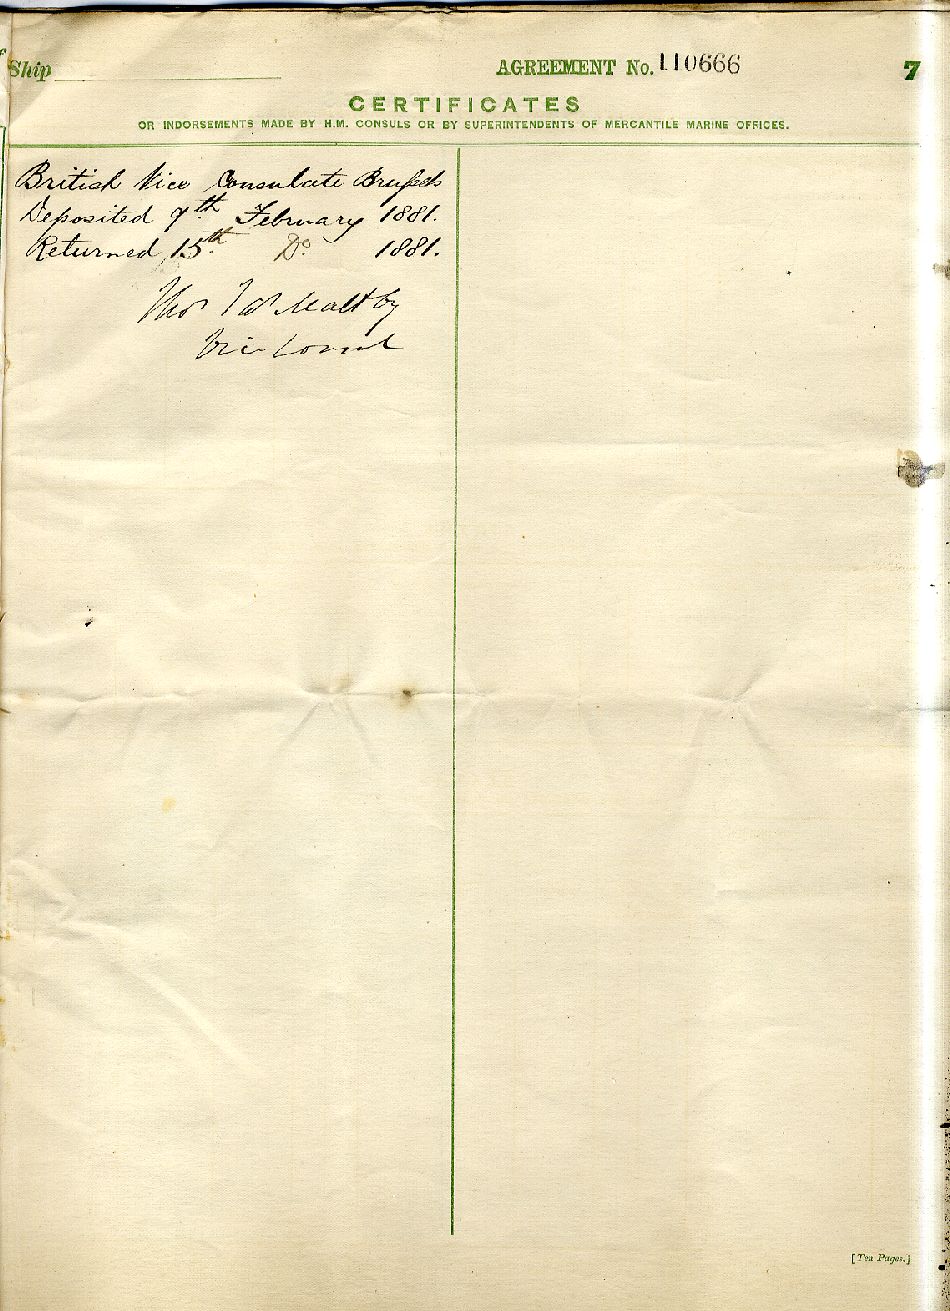 Ship
AGREEMENT No. 110666
7
CERTIFICATES
OR INDORSEMENTS MADE BY H.M. CONSULS OR BY SUPERINTENDENTS OF MERCANTILE MARINE OFFICES.
British Vice Consulate Brussels
Deposited 7th February 1881.
Returned 15th Do 1881.
Thos Maltby
Vice Consul
[Ten Pages.]